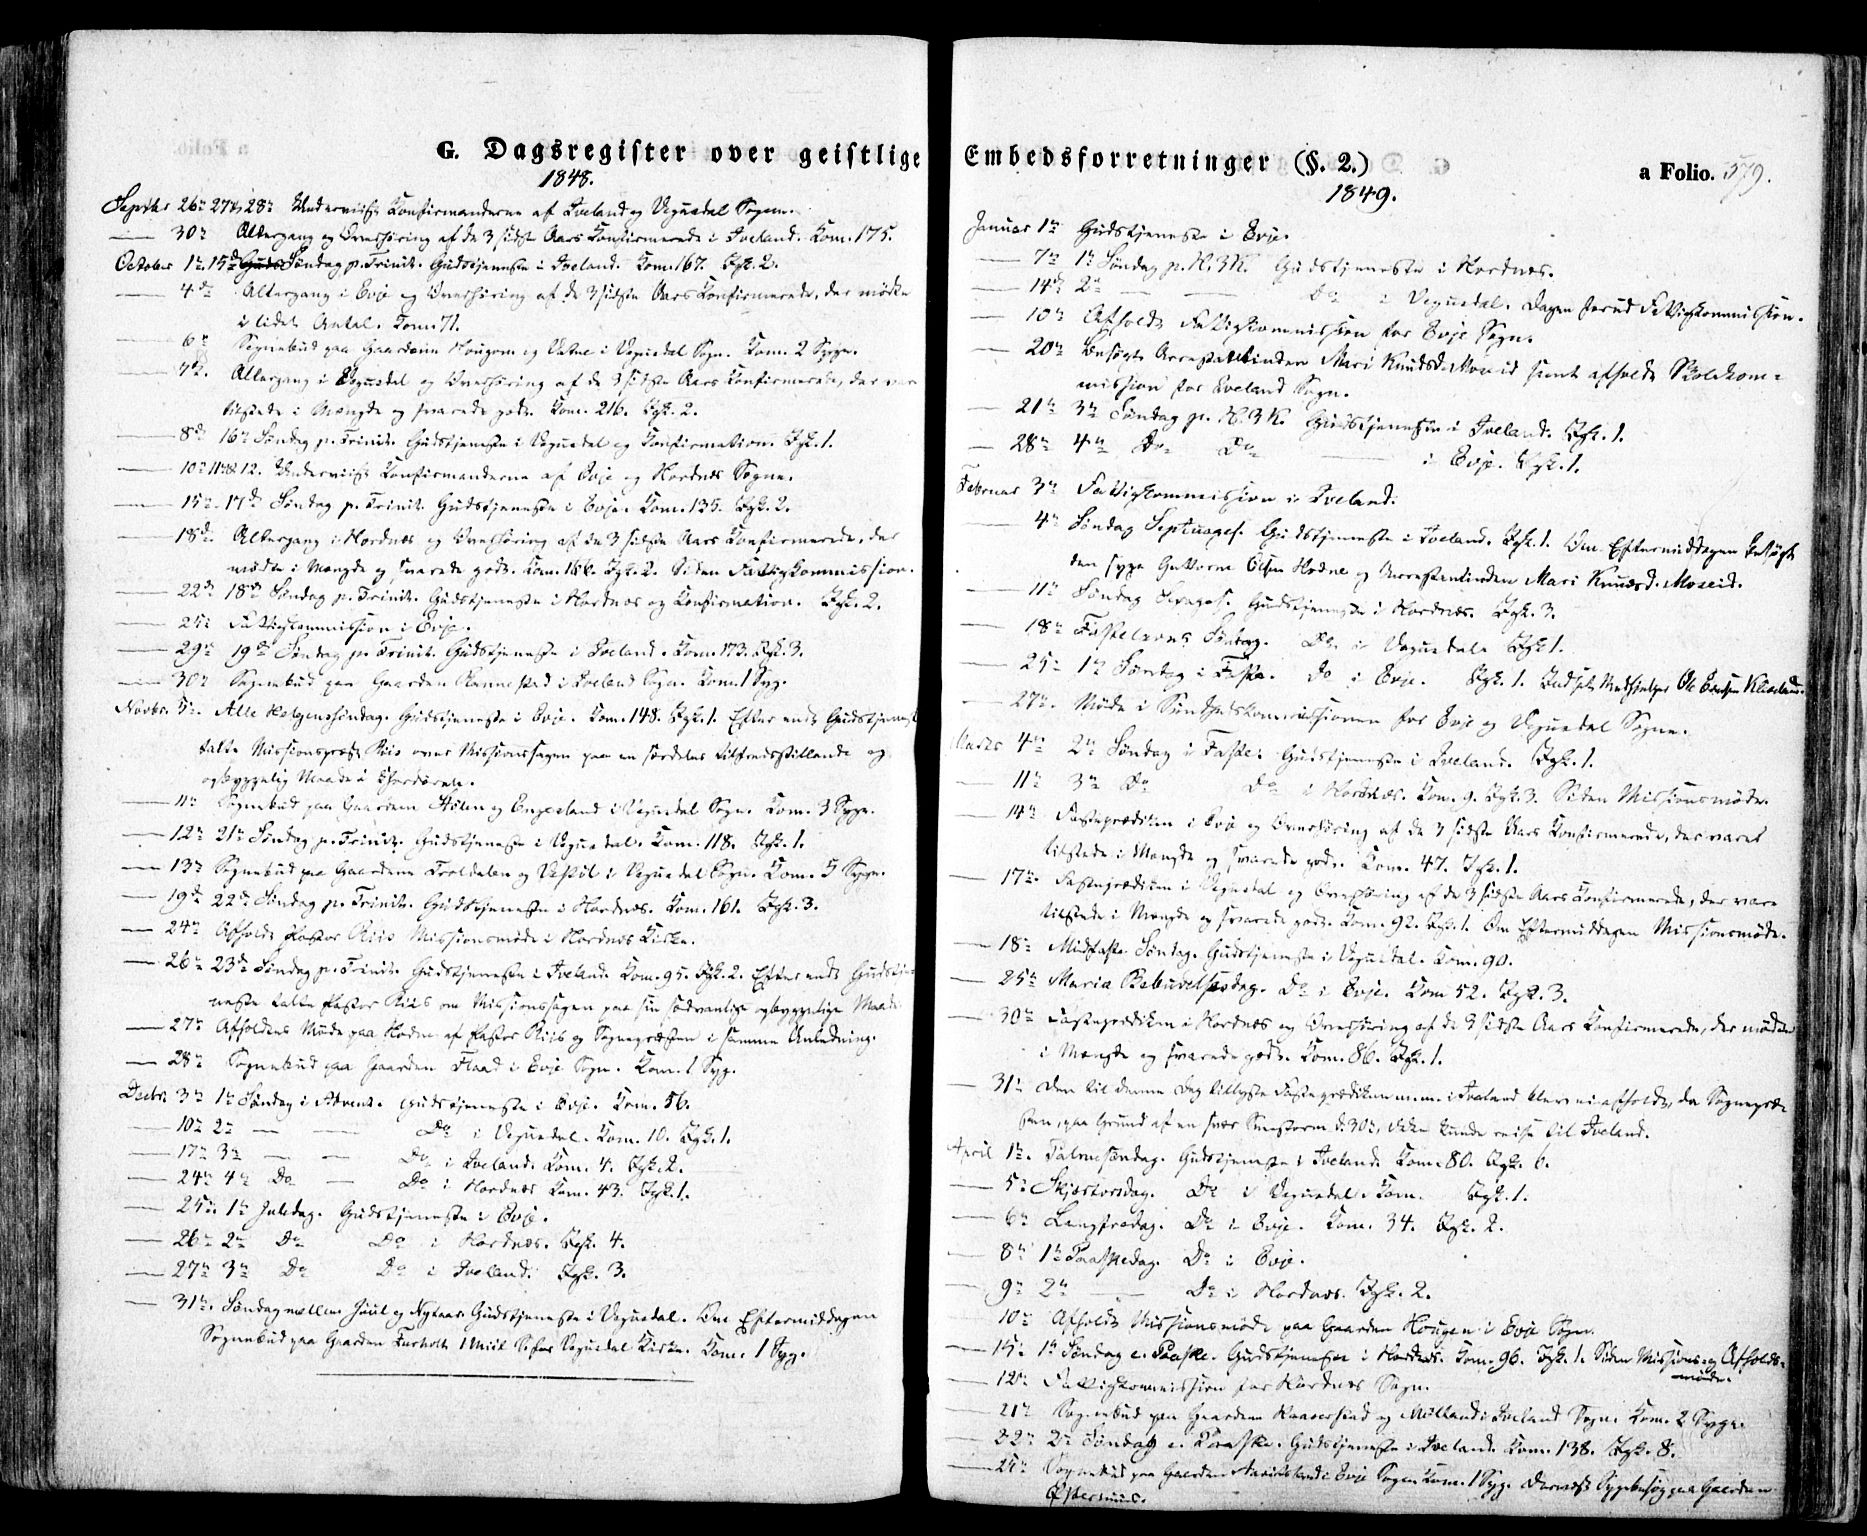 G. Dagsregister over geistlige
1848.
Septbr 26de 27de, 28de Underviist Konfirmanderne af Iveland og Vegusdal Sogne.
— 30te Altergang og Overhøring af de 3 sidste Aars Konfirmerede i Iveland. Kom. 175.
October 1te 15de Søndag p. Trinit. Gudstjeneste i Iveland. Kom. 167. Dgt. 2.
— 4de Altergang i Evje og Overhøring af de 3 sidste Aars Konfirmerede, der mødte
i lidet Antal. Kom. 71.
— 6te Sognebud paa Gaardene Hougom og Vatne i Vegusdal Sogn. Kom. 2 Syge.
— 7de. Altergang i Vegusdal og Overhøring af de 3 sidste Aars Konfirmerede, der var
tilstede i Mængde og svarede godt. Kom. 216. Dgt. 2.
— 8de 16de Søndag p. Trinit. Gudstjeneste i Vegusdal og Konfirmation. Dgt. 1.
— 10de 11te & 12. Underviist Konfirmanderne af Evje og Hordnes Sogne.
— 15de 17de Søndag p. Trinit. Gudstjeneste i Evje. Kom. 135. Dgt. 2.
— 18de Altergang i Hordnes og Overhøring af de 3 sidste Aars Konfirmerede, der
mødte i Mængde og svarede godt. Kom. 166. Dgt. 2. Siden Fattigkommission.
— 22de 18de Søndag p. Trinit. Gudstjeneste i Hordnes og Konfirmation. Dgt. 2.
— 25de Fattigkommission i Evje.
— 29de 19de Søndag p. Trinit. Gudstjeneste i Iveland. Kom. 173. Dgt. 3.
— 30te Sognebud paa Gaarden Rannestad i Iveland Sogn. Kom. 1 Syg.
Novbr. 5te. Alle Helgenssøndag. Gudstjeneste i Evje. Kom. 148. Dgt. 1. Efter endt Gudstjeneste
talte Missionspræst Riis over Missionssagen paa en særdeles tilfredsstillende og
opbyggelig Maade
— 11te Sognebud paa Gaardene Hølen og Engesland i Vegusdal Sogn. Kom. 3 Syge.
— 12te 21de Søndag p. Trinit. Gudstjeneste i Vegusdal. Kom. 118. Dgt. 1.
— 13de Sognebud paa Gaardene Troldalen og Vestøl i Vegusdal Sogn. Kom. 5 Syge.
— 19de 22de Søndag p. Trinit. Gudstjeneste i Hordnes. Kom. 161. Dgt. 3.
— 24de Afholdt Pastor Riis Missionsmøde i Hordnes Kirke.
— 26de 23de Søndag p. Trinit. Gudstjeneste i Iveland. Kom. 95. Dgt. 2. Efter endt Gudstje-
neste talte Pastor Riis om Missionssagen paa sin sædvanlige opbyggelige Maade.
— 27de Afholdtes Møde paa Hodne af Pastor Riis og Sognepræsten i samme Anledning.
— 28de Sognebud paa Gaarden Flaad i Evje Sogn. Kom. 1 Syg.
Decbr. 3de 1te Søndag i Advent. Gudstjeneste i Evje. Kom. 56.
— 10de 2de — — Do i Vegusdal. Kom. 10. Dgt. 1.
— 17de 3de — — Do i Iveland. Kom. 4. Dgt. 2.
— 24de 4de Do — Do i Hordnes Kom. 43. Dgt. 1.
— 25de. 1te Juledag. Gudstjeneste i Evje.
— 26de 2de Do Do i Hordnes. Dgt. 4.
— 27de 3de Do Do i Iveland. Dgt. 3.
— 31te. Søndag mellem Juul og Nytaar Gudstjeneste i Vegusdal. Om Eftermiddagen
Sognebud paa Gaarden 1 Miil Vegusdal Kirke. Kom. 1 Syg.
Embedsforretninger (§. 2.)
a Folio. 579.
1849.
Januar 1te Gudstjeneste i Evje.
— 7de 1te Søndag p. H. 3 K. Gudstjeneste i Hordnes.
— 14de 2de — — Do i Vegusdal. Dagen forud Fattigkommission.
— 10de Afholdt Fattigkommission for Evje Sogn.
— 20de Besøgt Arrestantinden Mari Knudsd. Moseid samt afholdt Skolekom=
mission for Iveland Sogn.
— 21de 3de Søndag p. H. 3 K. Gudstjeneste i Iveland. Dgt. 1.
— 28de 4de Do Do — i Evje. Dgt. 1.
Februar 3de Fattigkommission i Iveland.
— 4de Søndag Septuages. Gudstjeneste i Iveland. Dgt. 1. Om Eftermiddagen besøgt
den syge Guttorm Olsen Hodne og Arrestantinden Mari Knudsd. Moseid.
— 11te Søndag Sexages. Gudstjeneste i Hordnes. Dgt. 3.
— 18de Fastelavns Søndag. Do i Vegusdal. Dgt 1.
— 25de 1te Søndag i Faste. Do i Evje. Dgt. 1. Indsat Medhjelper Ole
— 27de. Møde i Sundhedskommissionen for Evje og Vegusdal Sogne.
Marts 4de 2de Søndag i Faste. Gudstjeneste i Iveland. Dgt. 1.
— 11te 3de Do Do i Hordnes. Kom. 9. Dgt. 3. Siden Missionsmøde.
— 14de Fasteprædiken i Evje og Overhøring af de 3 sidste Aars Konfirmerede, der varet
tilstede i Mængde og svarede godt. Kom. 47. Dgt. 1.
— 17de. Fasteprædiken i Vegusdal og Overhøring af de 3 sidste Aars Konfirmerede, der vare
tilstede i Mængde og svarede godt. Kom. 92. Dgt. 1. Om Eftermiddagen Missionsmøde.
— 18de Midfaste Søndag. Gudstjeneste i Vegusdal. Kom. 90.
— 25de Maria Bebudelsesdag. Do i Evje. Kom 52. Dgt. 3.
— 30te Fasteprediken i Hordnes og Overhøring af de 3 sidste Aars Konfirmerede, der mødte
i Mængde og svarede godt. Kom. 86. Dgt. 1.
— 31te Den til denne Dag tillyste Fasteprædiken m.m. i Iveland blev ei afholdt, da Sognepræ-
sten, paa Grund af en svær Sneestorm d. 30te, ikke kunde reise til Iveland.
April 1te. Palmesøndag. Gudstjeneste i Iveland. Kom. 80. Dgt. 6.
— 5te Skjærtorsdag. Do i Vegusdal. Kom. Dgt. 1.
— 6te Langfredag. Do i Evje. Kom. 34. Dgt. 2.
— 8de 1te Paaskedag. Do i Evje.
— 9de 2de — Do i Hordnes. Dgt. 2.
— 10de Afholdt Missionsmøde paa Gaarden Hougen i Evje Sogn.
— 15de 1te Søndag e. Paaske. Gudstjeneste i Hordnes. Kom. 96. Dgt. 1. Siden Missions- og Afholds-
møde.
— 12te Fattigkommission for Hordnes Sogn.
— 21de Sognebud paa Gaardene og Molland i Iveland Sogn. Kom. 2 Syge.
— 22de 2de Søndag e. Paaske. Gudstjeneste i Iveland. Kom. 138. Dgt. 8.
— Sognebud paa Gaarden i Evje Sogn. Kom. 1 Syg. Dernæst Sygebesøg paa Gaarden